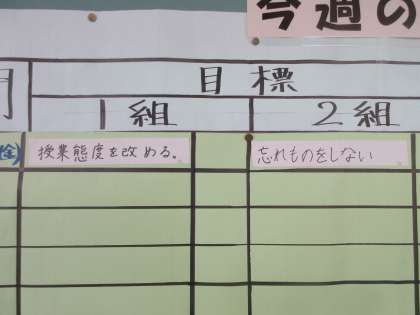 今週の
目標
1組
2組
(金)
授業態度を改める。
忘れものをしない